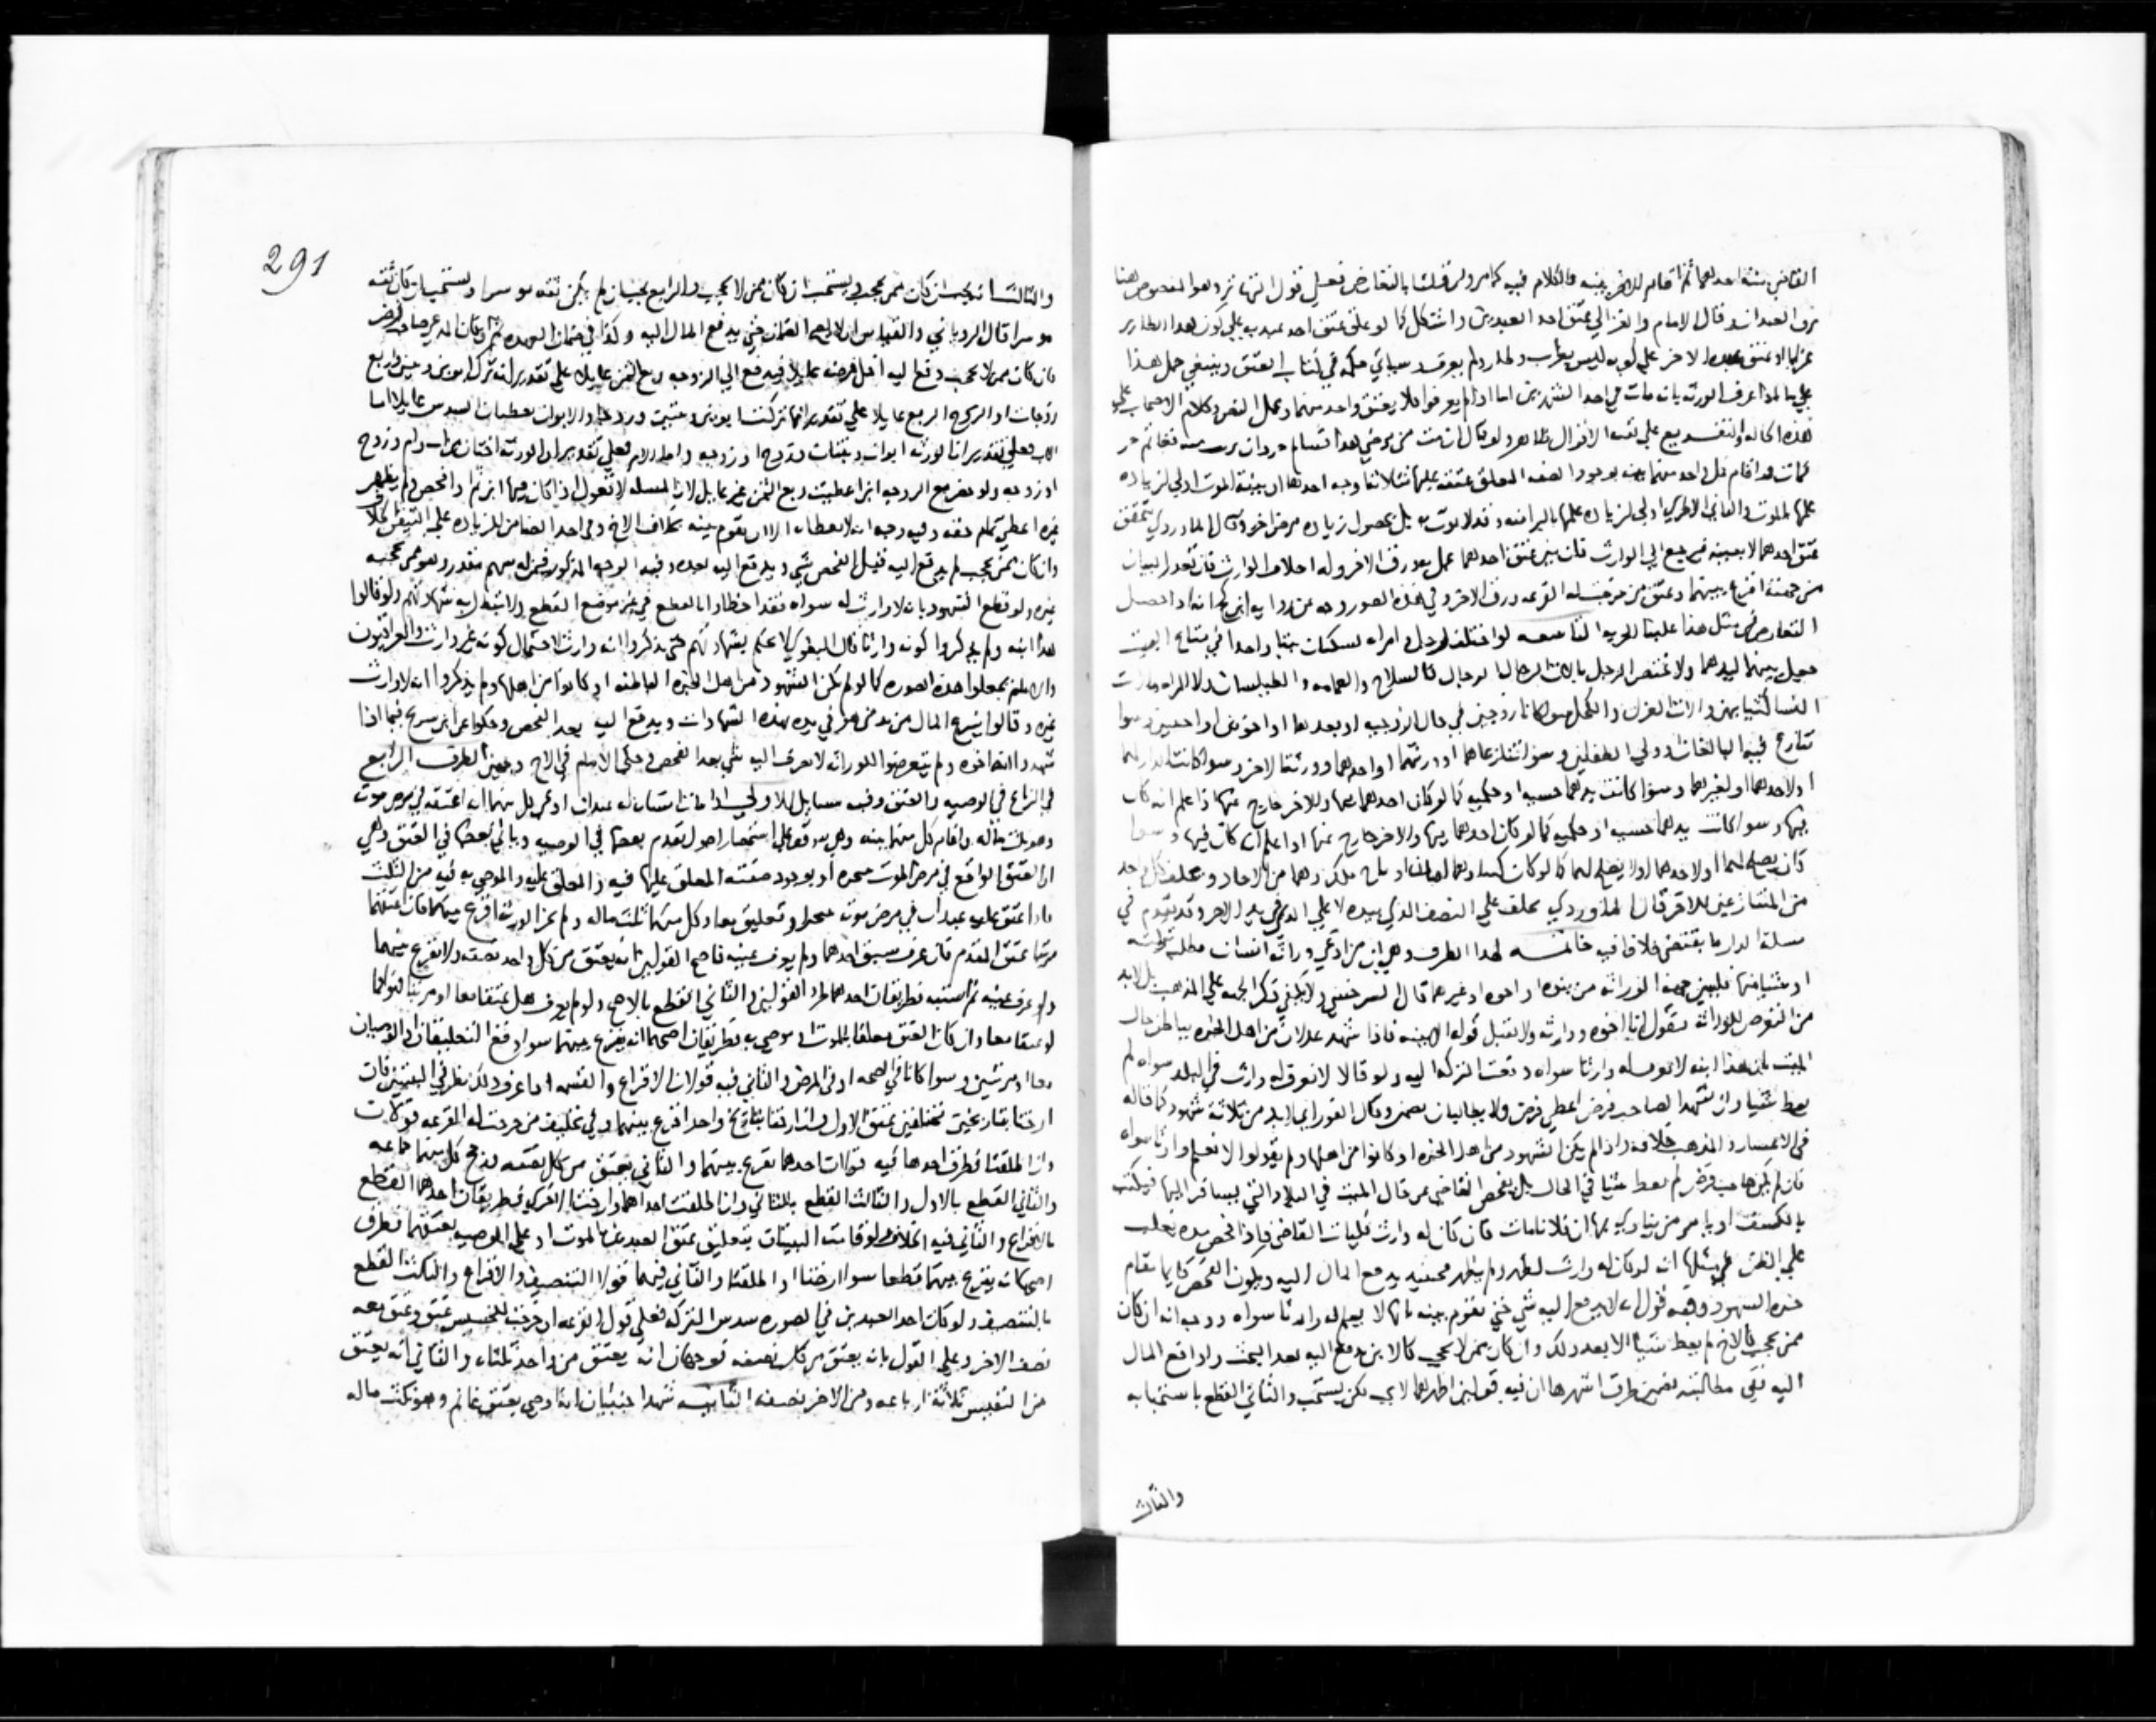 القاضي بينة احدهما ثم اقام الاخر بينه فالكلام فيه كما مر وان قلنا بالتعارض فعلى قول التهاتر وهو المنصوص هنا
يرق العبدان وقال الامام والغزالي عتق احد العبدين واشكل كما لو علق عتق احد عبديه علي كون هذا الطاير
غرابا وعتق الاخر علي كونه ليس بغراب وطار ولم يعرف وسياتي حكمه في كتاب العتق وينبغي حمل هذا
علي ما اذا عرف الورثه بانه مات في احد الشهرين اما اذا لم يعرفوا فلا يعتق واحد منهما وعمل النص وكلام الاصحاب علي
هذه الحاله والتفريع علي بقيه الاقوال ظاهر ولو قال ان مت من مرضي هذا فسالم حر وان برئت منه فغانم حر
فمات واقام كل واحد منهما بينه بوجود الصفه المعلق عتقه عليها تساقطا وجه احدها ان بينة الموت اولي لزياده
علمها بالموت والثاني الاخري اولي لزياده علمها بالبرا منه وقد لا يموت به بل بحصول زياده مرض اخر وقال الماوردي يتحقق
عتق احدهما لا بعينه فيرجع الي الوارث فان بين عتق احدهما عمل به ورق الاخر وله احلاف الوارث فان تعذر البيان
من جهته اقرع بينهما وعتق من خرجت له القرعه ورق الاخر وفي هذه الصور وجه عن رواية ابن كج انه اذا حصل
التعارض في مثل هذا علينا الحريه التاسعه لو اختلف رجل وامراه يسكنان بيتا واحدا في متاع البيت
جعل بينهما ليدهما ولا يختص الرجل بالات الرجال كالسلاح والعمامه والطيلسان ولا المراه بالات
النسا كثيابهن والات الغزل والكحل سوا كانا زوجين في حال الزوجيه او بعدها او اخوين او اجنبيين وسوا
تنازع فيه البالغان وولي الطفلين وسوا تنازعاهما او ورثتهما او احدهما وورثة الاخر وسوا كانت الدار لهما
او لاحدهما او لغيرهما وسوا كانت يدهما حسيه او حكميه كما لو كان احدهما فيها والاخر خارج عنها اذا علم انه كان
فيها وسوا كانت يدهما حسيه او حكميه كما لو كان احدهما فيها والاخر خارج عنها اذا علم ان كان فيها وسوا
كان يصلح لهما او لاحدهما او لا يصلح لهما كما لو كان
من المتنازعين للاخر قال الماوردي يحلف علي النصف الذي بيده لا علي الذي في يد الاخر وقد تقدم في
مسلة الدار ما يقتضي خلافا فيه خاتمه لهذا الطرف وهي ان من ادعي وراثه انسان وطلب تركته
او شيا منها فليبين جهة الوراثه من بنوه او اخوه او غيرهما قال السرخسي ولا يكفي ذكر الجهه علي المذهب بل لا بد
من التعرض للوراثه فيقول انا اخوه ووارثه ولا تقبل قوله الا ببينه فاذا شهد عدلان من اهل الخبره بباطن حال
الميت بان هذا ابنه لا نعرف له وارثا سواه دفعت التركه اليه ولو قالا لا نعرف له وارث في البلد سواه لم
يعط شيا وان شهدا لصاحب فرض اعطي فرضه ولا يطالبان بضمين وقال الفوراني لا بد من ثلاثة شهود كما قاله
في الاعسار والمذهب خلافه واذا لم يكن الشهود من اهل الخبره او كانوا من اهلها ولم يقولوا لا نعلم وارثا سواه
فان لم يكن صاحب فرض لم يعط شيا في الحال بل يفحص القاضي عن حال الميت في البلاد التي يسافر اليها فيكتب
بالكشف او يامر من ينادي بها ان فلانا مات فان كان له وارث فليات القاضي فاذا فحص مده يغلب
علي الظن في مثلها انه لو كان له وارث لظهر ولم يظهر فحينئذ يدفع المال اليه ويكون الفحص قايما مقام
خبرة الشهود وفيه قول انه لا يدفع اليه شي حتي تقوم بينه بانها لا تعلم له وارثا سواه ووجه انه ان كان
ممن يحجب كالاخ لم يعط شيا الا بعد ذلك وان كان ممن لا يحجب كالابن دفع اليه بعد البحث واذا دفع المال
اليه ففي مطالبته بضمين طرق اشهرها ان فيه قولين اظهرهما لا يجب لكن يستحب والثاني القطع باستحبابه
والثالث
291
والثالث انه يجب ان كان ممن يحجب ويستحب ان كان ممن لا يحجب والرابع يجب ان لم يكن ثقه موسرا ويستحب ان كان ثقه
موسرا قال الروياني والقياس ان لا يلزمه الضمان حتي يدفع المال اليه وكذا في ضمان العهده ثم ان كان المدعي صاحب فرض
فان كان ممن لا يحجب دفع اليه اقل فرضه عايلا فيدفع الي الزوجه ربع الثمن عايلا علي تقدير انه ترك ابوين وبنتين واربع
زوجات او الزوج الربع عايلا علي تقدير انها تركت ابوين وبنتين وزوجا والابوان يعطيان السدس عايلا اما
الاب فعلي تقدير ان الورثه ابوان وبنتان وزوج او زوجه واما الام فعلي تقدير ان الورثه اختان لاب وام وزوج
او زوجه ولو حضر مع الزوجه ابن اعطيت ربع الثمن غير عايل لان المسله لا تعول اذا كان فيها ابن ثم اذا فحص ولم يظهر
غيره اعطي تمام حقه وفيه وجه انه لا يعطاه الا ان تقوم بينه بخلاف الاخ
وان كان ممن يحجب لم يدفع اليه قبل الفحص شي ويدفع اليه بعده وفيه الوجه المذكور فيمن له سهم مقدر وهو ممن يحجبه
غيره ولو قطع الشهود بانه لا وارث له سواه فقد اخطاوا بالقطع في غير موضع القطع ولا تبطل به شهادتهم ولو قالوا
هذا ابنه ولم يذكروا كونه وارثا قال البغوي لا يحكم بشهادتهم حتي يذكروا انه وارث لاحتمال كونه غير وارث والعراقيون
والامام جعلوا هذه الصوره كما لو لم يكن الشهود من اهل الخبره الباطنه او كانوا من اهلها ولم يذكروا انه لا وارث
غيره وقالوا ينزع المال من يد من هو في يده بهذه الشهادات ويدفع اليه بعد الفحص وحكوا عن ابن سريج فيما اذا
شهدوا انه اخوه ولم يتعرضوا للوراثه لا يصرف اليه شي بعد الفحص وحكي الامام في الاخ وجهين الطرف الرابع
في النزاع في الوصيه والعتق وفيه مسايل الاولي اذا مات انسان له عبدان ادعي كل منهما انه اعتقه في مرض موته
وهو ثلث ماله واقام كل منهما بينه وهي متوقفه علي استحضار اصول تقدم بعضها في الوصيه وياتي بعضها في العتق وهي
ان العتق الواقع في مرض الموت منجزه او بوجود صفته المعلق عليها فيه والمعلق عليه والموصي به فيه من الثلث
فاذا اعتق عبدان في مرض موت منجزا وتعليق معا وكل منهما ثلث ماله ولم يجز الورثه اقرع بينهما فان اعتقهما
مرتبا عتق المقدم فان عرف سبق احدهما ولم يعرف عينه فاصح القولين انه يعتق من كل واحد نصفه ولا يقرع بينهما
ولو عرف عينه ثم اشتبه فطريقان احدهما طرد القولين والثاني القطع بالاصح ولو لم يعرف هل عتقا معا او مرتبا فكما
لو عتقا معا وان كان العتق معلقا بالموت او موصي به فطريقان اصحهما انه يقرع بينهما سوا وقع التعليقان او الوصيتان
معا او مرتبين وسوا كانا في الصحه او في المرض والثاني فيه قولان الاقراع والقسمه اذا عرف ذلك نظر في البينتين فان
ارختا بتاريخين مختلفين عتق الاول وان ارختا بتاريخ واحد اقرع بينهما وفي تحليف من خرجت له القرعه قولان
وان اطلقتا فطرق احدها فيه قولان احدهما يقرع بينهما والثاني يعتق من كل نصفه رجح كل منهما جماعه
والثاني القطع بالاول والثالث القطع بالثاني وان اطلقت احداهما وارخت الاخري فطريقان احدهما القطع
بالاقراع والثاني فيه الخلاف ولو قامت البينتان بتعليق عتق العبدين بالموت او علي الوصيه بعتقهما فطرق
اصحها انه يقرع بينهما قطعا سوا ارختا او اطلقتا والثاني فيهما قولا التنصيف والاقراع والثالث القطع
بالتنصيف ولو كان احد العبدين في الصوره سدس التركه فعلي قول القرعه ان خرجت للخسيس عتق وعتق معه
نصف الاخر وعلي القول بانه يعتق من كل نصفه فوجهان انه يعتق من واحد ثلثاه والثاني انه يعتق
من النفيس ثلاثة ارباعه ومن الاخر نصفه الثانيه شهد اجنبيان انه اوصي بعتق غانم وهو ثلث ماله